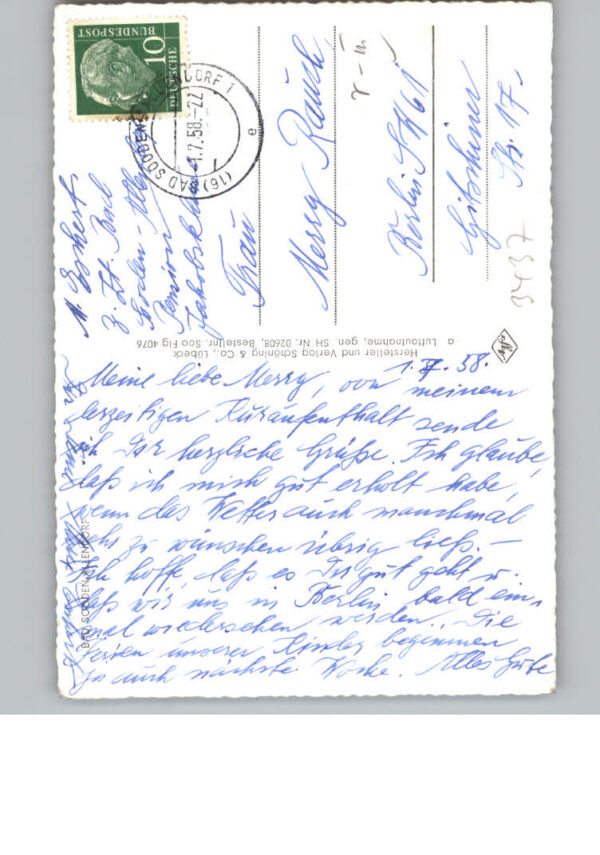 DEUTSCHE
BUNDESPOST
10
(16) BAD SOODEN-ALLENDORF 1
-1.7.58-22
e
M. 
z. Zt. Bad
Sooden-Allen
Pension
Jakobsklause
Frau
Merry Rausch
Berlin SW 61
Gitschiner
Str. 17.
3437
Hersteller und Verlag Schöning & Co., Lübeck
a Luftaufnahme, gen. SH Nr. 02608, Bestellnr. Soo Fig 4076
BAD SOODEN-ALLENDORF
1. 7. 58.
Meine liebe Merry, von meinem
derzeitigen Kuraufenthalt sende
ich Dir herzliche Grüße. Ich glaube,
daß ich mich gut erholt habe,
wenn das Wetter auch manchmal
zu wünschen übrig ließ. –
Ich hoffe, daß es Dir gut geht u.
daß wir uns in Berlin bald ein-
mal wiedersehen werden. Die
Ferien unserer Kinder beginnen
ja auch nächste Woche. Alles Gute